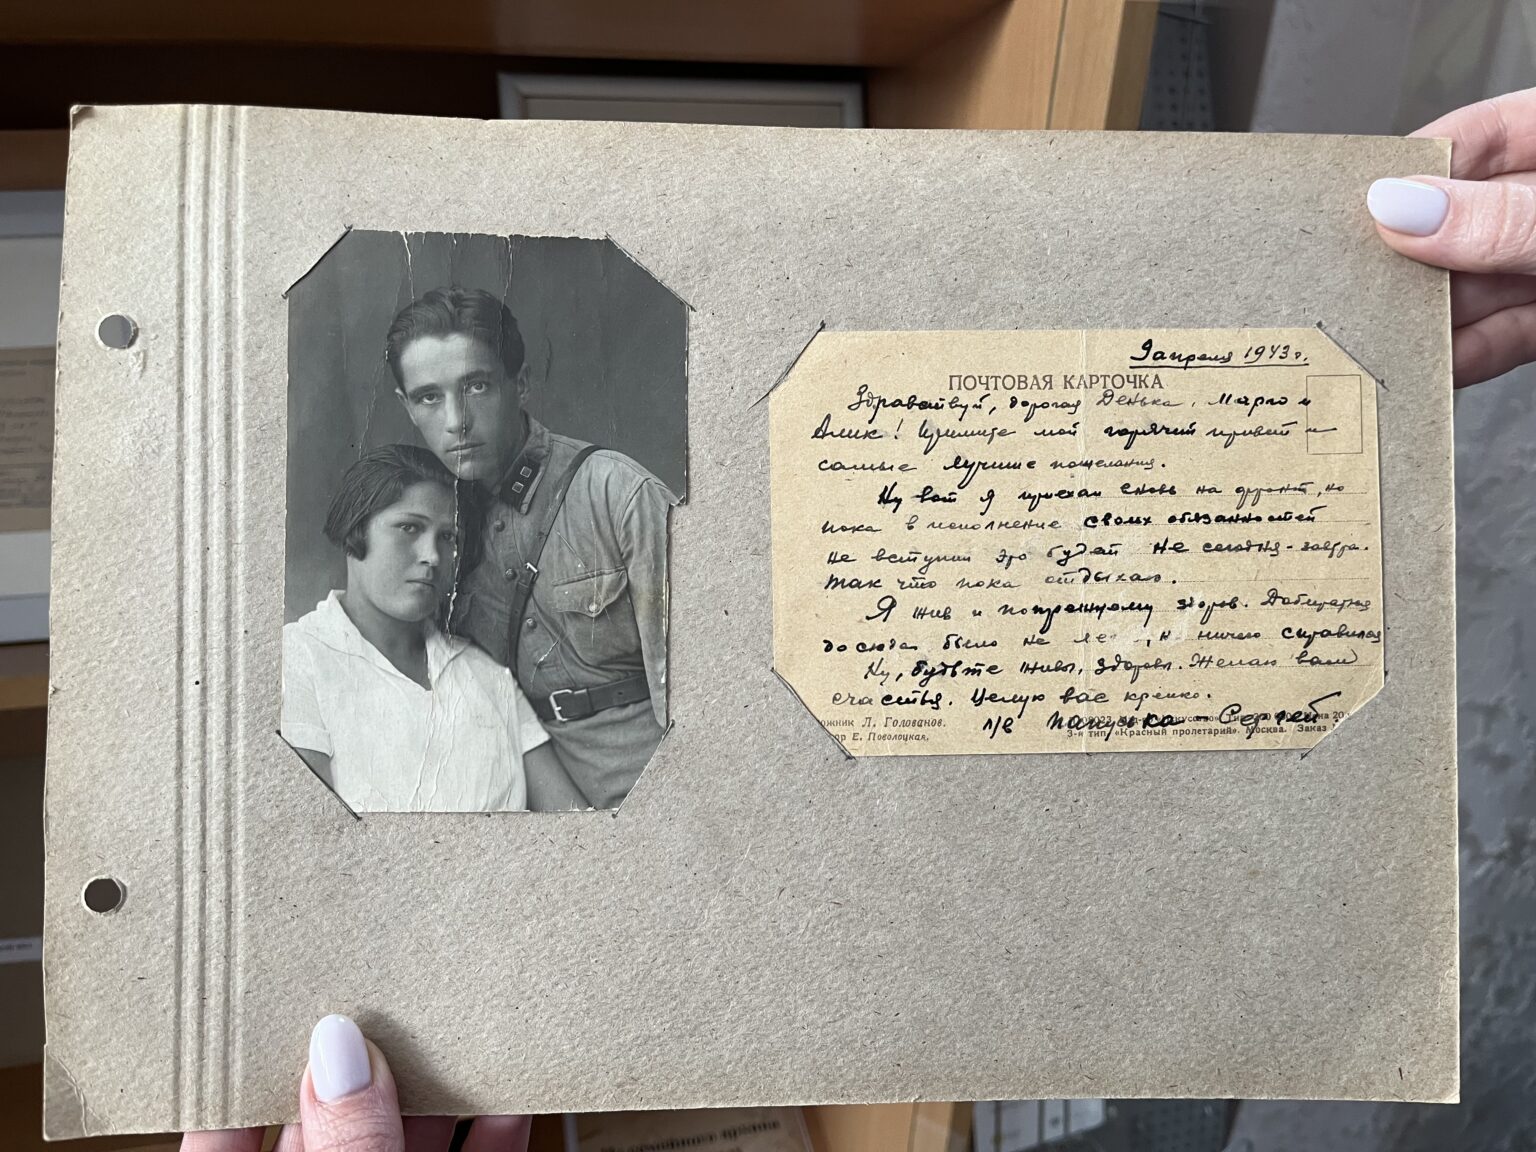 9 апреля 1943 г.
ПОЧТОВАЯ КАРТОЧКА
Здравствуй, дорогая Денька, Марго и
Алик! Примите мой горячий привет и
самые лучшие пожелания.
Ну вот я приехал вновь на фронт, но
пока в исполнение своих обязанностей
не вступил это будет не сегодня-завтра.
так что пока отдыхаю.
Я жив и по прежнему здоров. Добираться
до сюда было не ничего справился
Ну, будьте живы, здоровы. Желаю вам
счастья. Целую вас крепко.
п/в Папулька-Сергей
ожник Л. Голованов.
ор Е. Поволоцкая.
3-я тип. «Красный пролетарий». Москва. Заказ